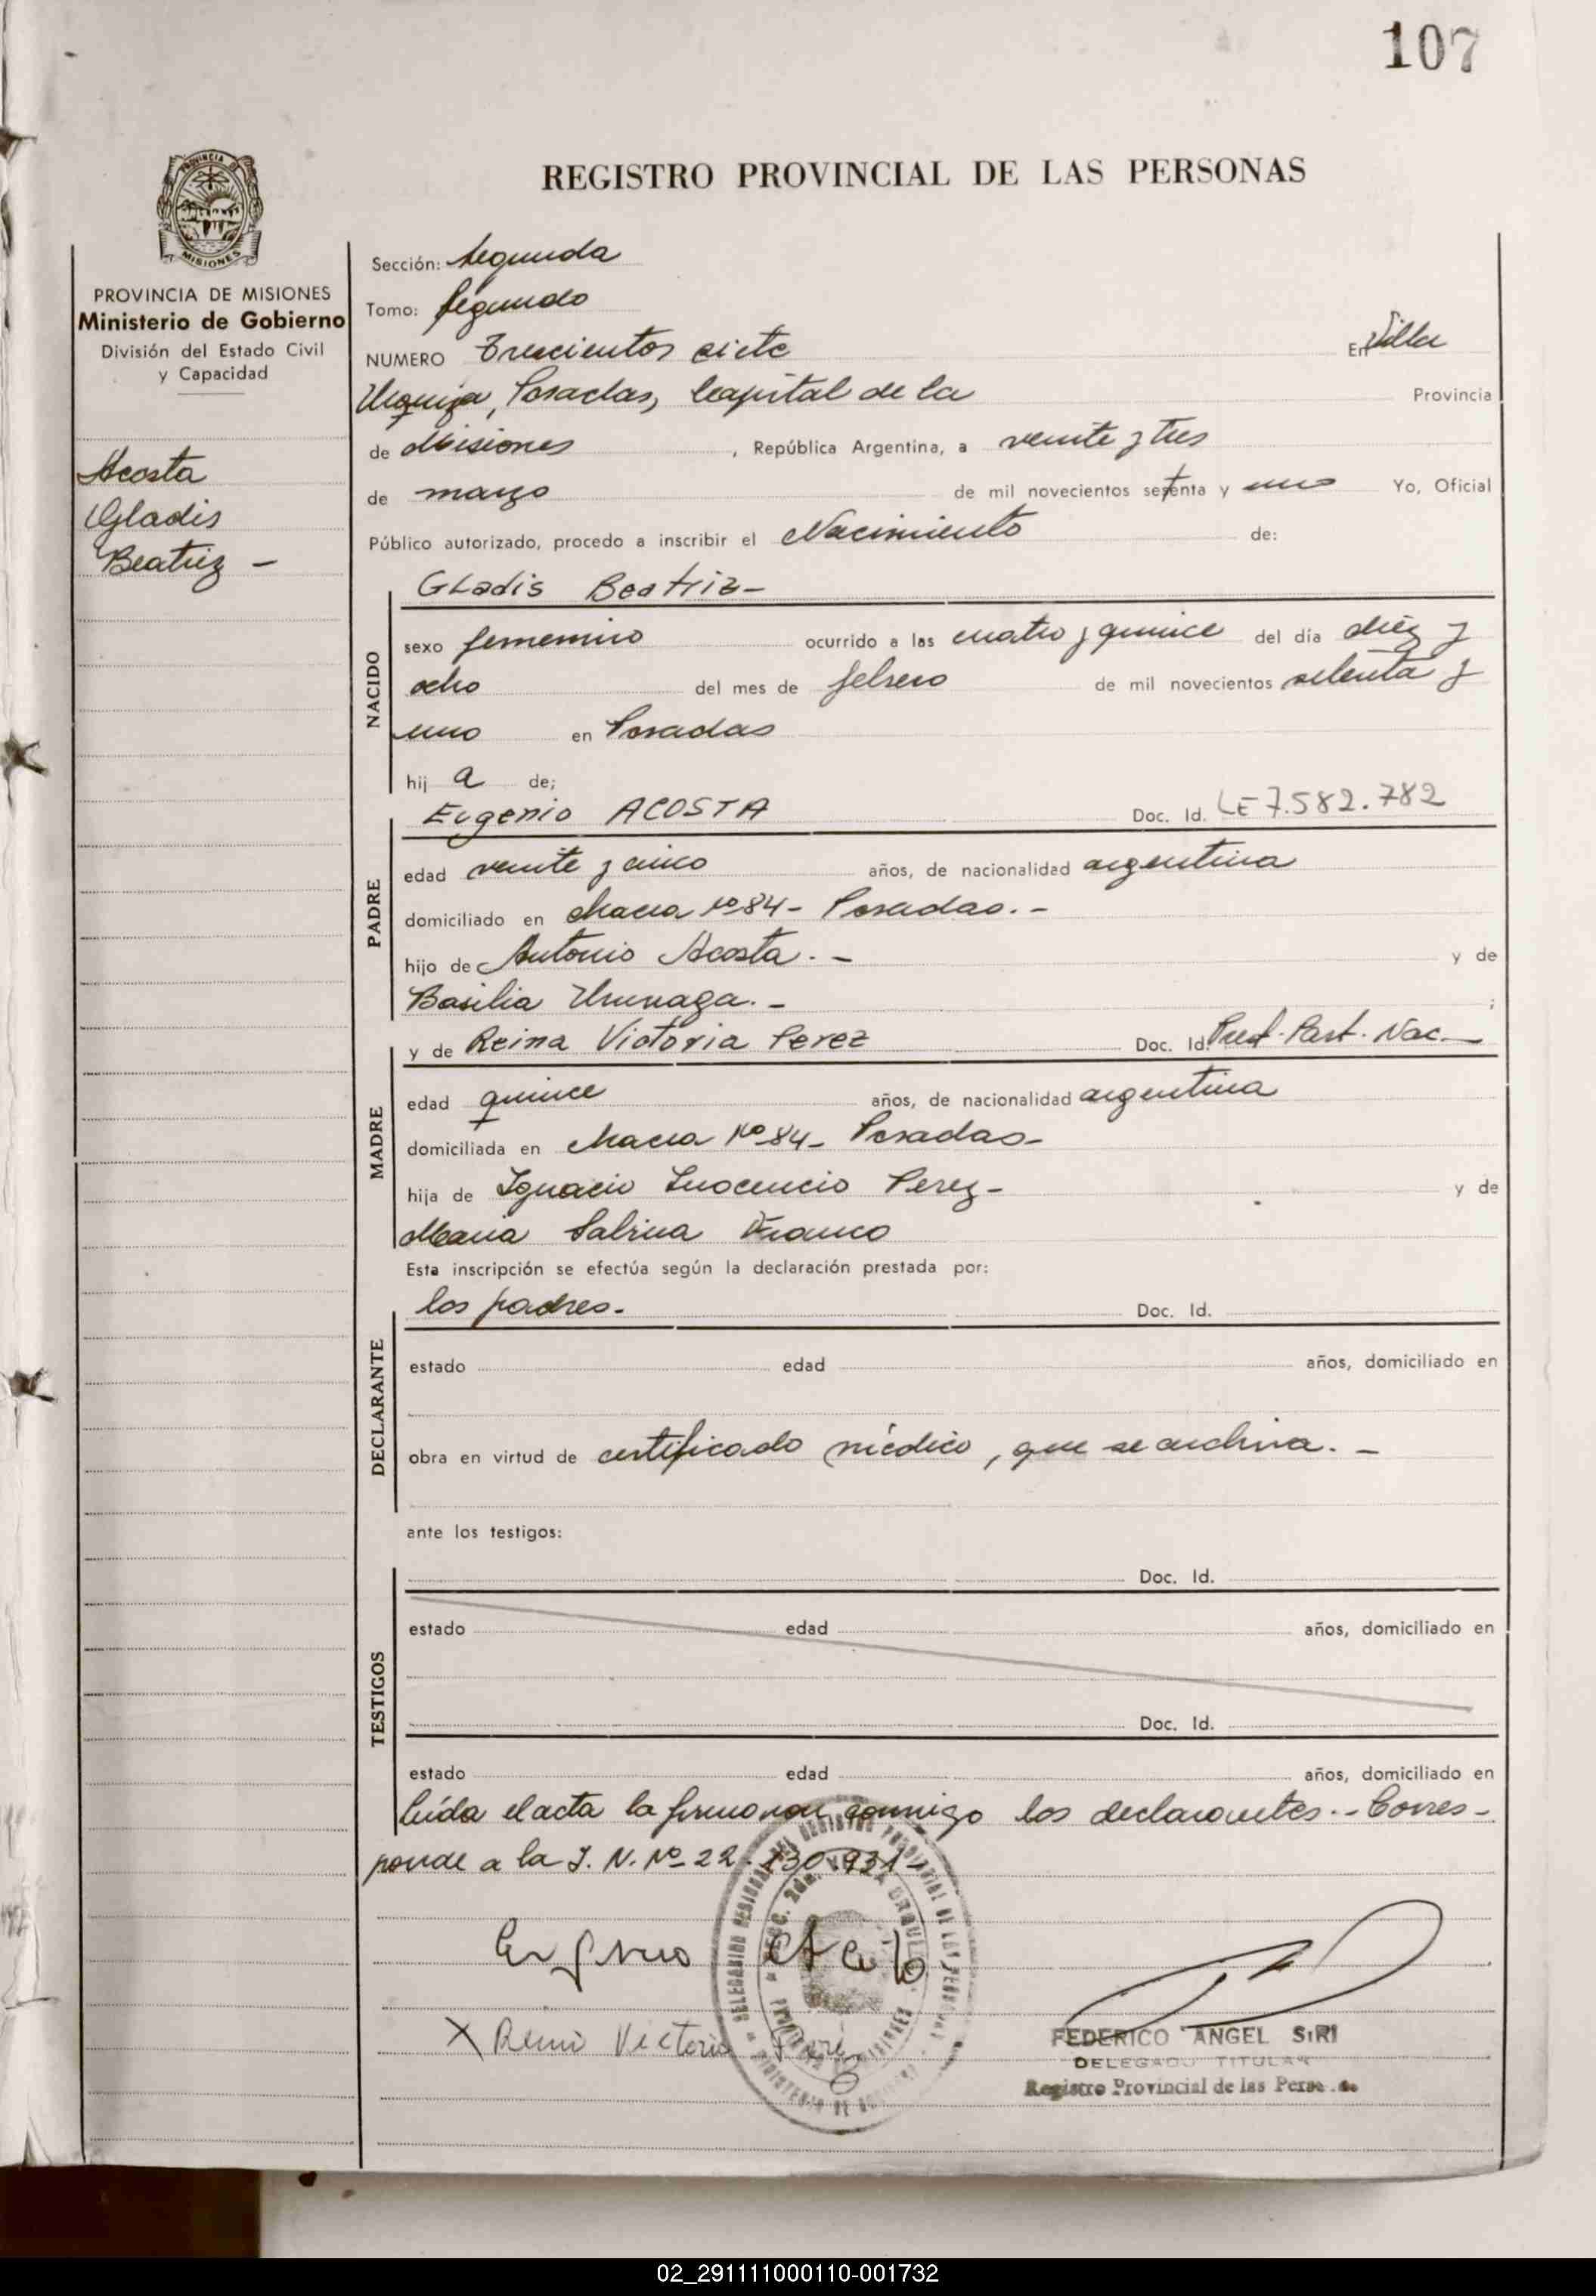 107
REGISTRO PROVINCIAL DE LAS PERSONAS
PROVINCIA DE MISIONES
Ministerio de Gobierno
División del Estado Civil
y Capacidad
Acosta
Gladis
Beatriz -
Sección: Segunda
Tomo: Segundo
NUMERO Trescientos siete En Villa
Urquiza, Posadas, Capital de la Provincia
de Misiones, República Argentina, a veinte y tres
de marzo de mil novecientos setenta y uno Yo, Oficial
Público autorizado, procedo a inscribir el Nacimiento de:
NACIDO
GLadis Beatriz-
sexo femenino ocurrido a las cuatro y quince del día diez y
ocho del mes de febrero de mil novecientos setenta y
uno en Posadas
hij a de;
PADRE
Eugenio ACOSTA Doc. Id. LE 7.582.782
edad veinte y cinco años, de nacionalidad argentina
domiciliado en Chacra Nº 84- Posadas.-
hijo de Antonio Acosta.- y de
Basilia ;
MADRE
y de Reina Victoria Perez Doc. Id. Part. Nac.
edad quince años, de nacionalidad argentina
domiciliada en Chacra Nº 84- Posadas-
hija de Ignacio Inocencio Perez- y de
Maria Sabina Franco
Esta inscripción se efectúa según la declaración prestada por:
DECLARANTE
los padres- Doc. Id.
estado edad años, domiciliado en
obra en virtud de certificado médico, que se archiva.-
ante los testigos:
TESTIGOS
Doc. Id.
estado edad años, domiciliado en
Doc. Id.
estado edad años, domiciliado en
Leída el acta la firmaron conmigo los declarantes.- Corres-
ponde a la I. N. Nº 22.130.931-
X Victoria
FEDERICO ANGEL SIRI
DELEGADO TITULAR
Registro Provincial de las
02_291111000110-001732